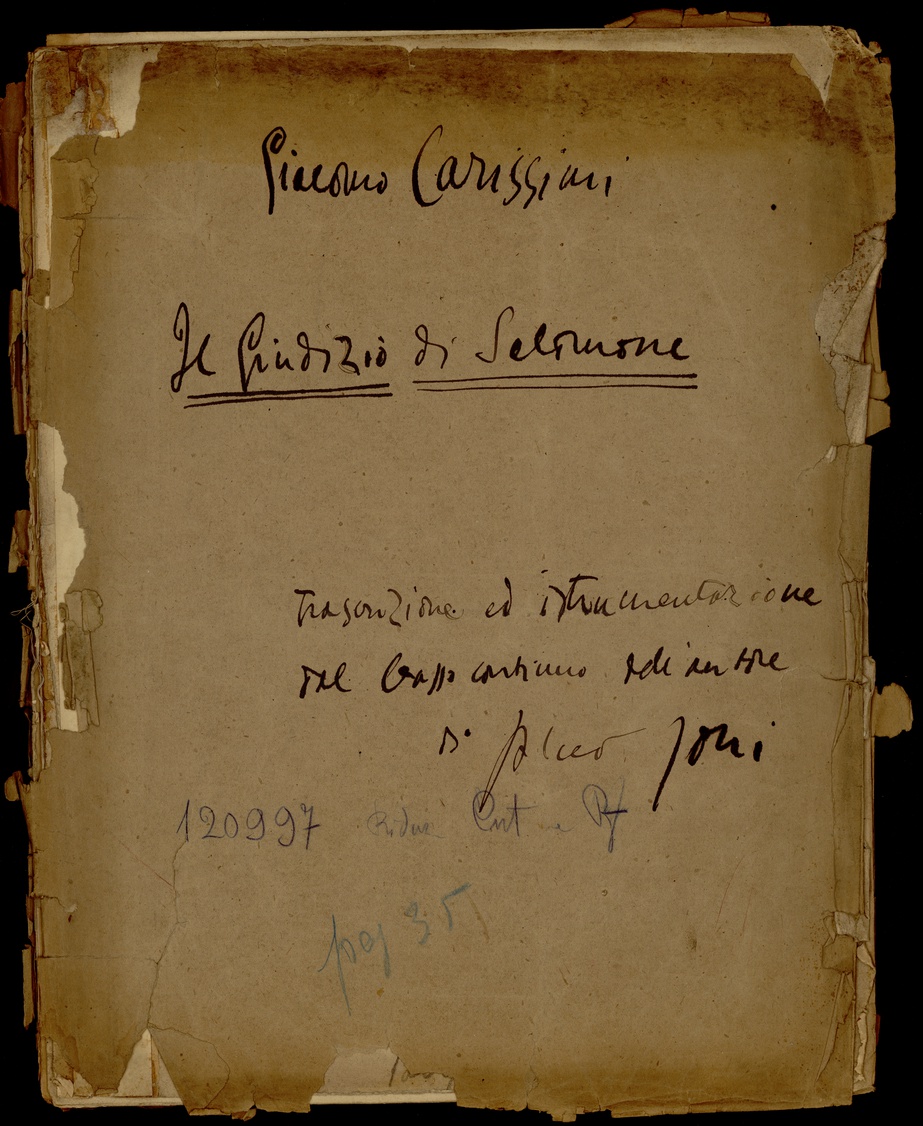 Giacomo Carissimi
Il Giudizio di Salomone
Trascrizione ed istrumentazione
dal basso continuo dell'autore
di Toni
120997 Riduz Cant e Pf
pag 35